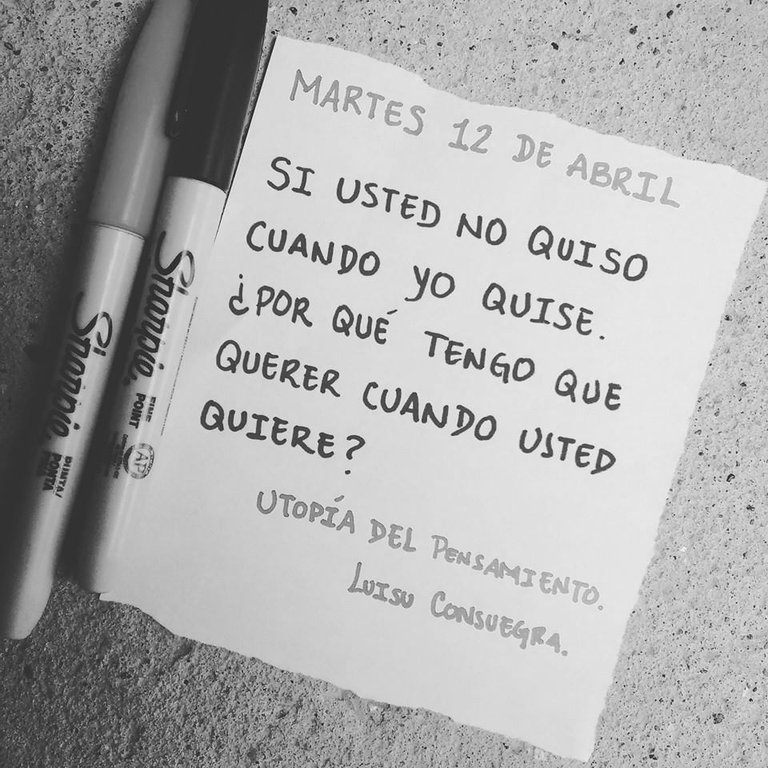 MARTES 12 DE ABRIL
SI USTED NO QUISO
CUANDO YO QUISE.
¿POR QUÉ TENGO QUE
QUERER CUANDO USTED
QUIERE?
UTOPÍA DEL PENSAMIENTO.
LUISU CONSUEGRA.
Sharpie.
FINE
POINT
AP
Sharpie.
PUNTA/
PONTA